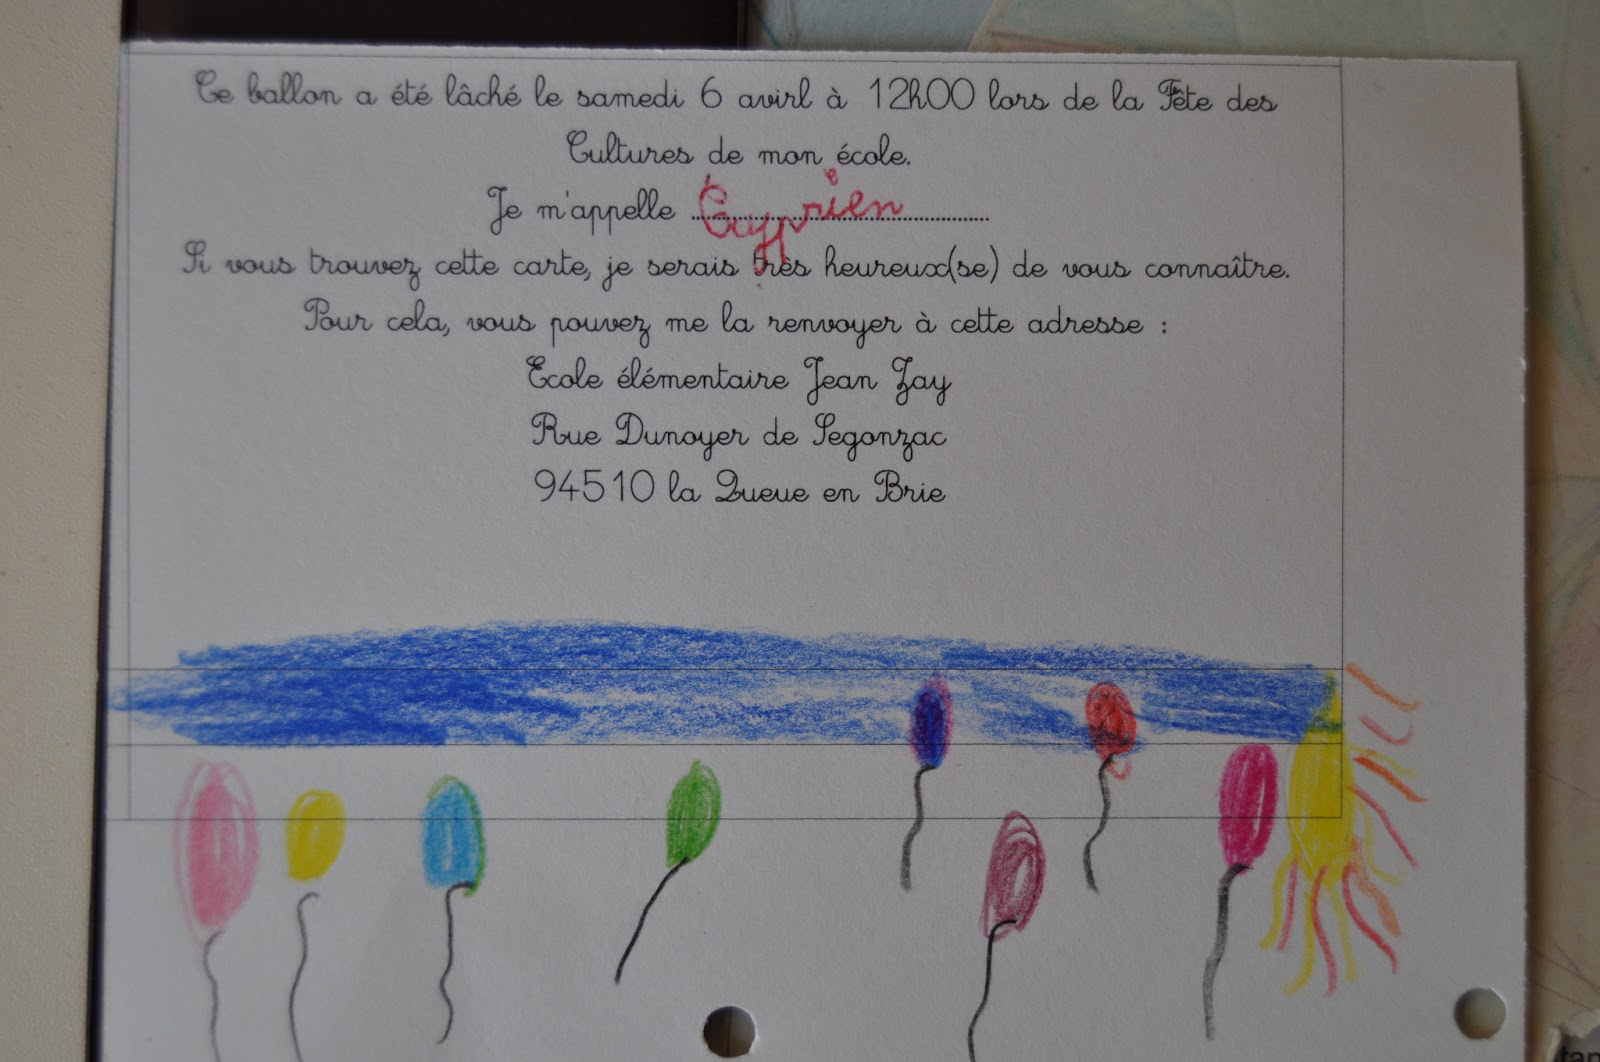 Ce ballon a été lâché le samedi 6 avirl à 12h00 lors de la Fête des
Cultures de mon école.
Je m'appelle Cyprien
Si vous trouvez cette carte, je serais très heureux(se) de vous connaître.
Pour cela, vous pouvez me la renvoyer à cette adresse :
Ecole élémentaire Jean Zay
Rue Dunoyer de Segonzac
94510 la Queue en Brie